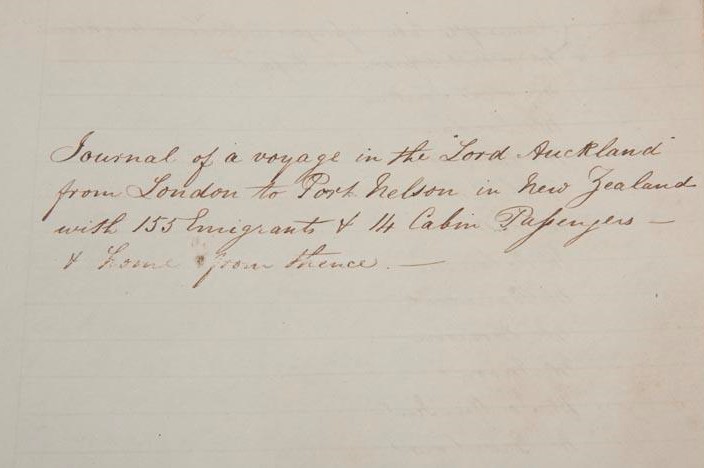 Journal of a voyage in the "Lord Auckland"
from London to Port Nelson in New Zealand
with 155 Emigrants & 14 Cabin Passengers —
& home from thence. —